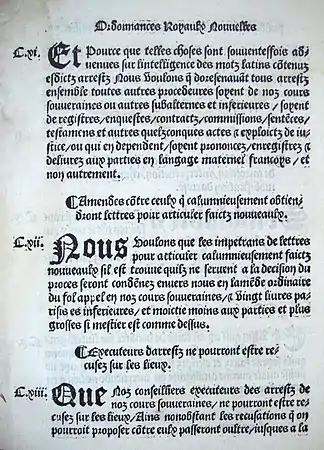 Ordonnances Royaulx Nouvelles
C.xi. Et Pource que telles choses sont souuenteffois ad-
uenues sur lintelligence des motz latins cõtenuz
esdictz arrestz Nous Voulons q̃ doresenauãt tous arrestz
ensemble toutes autres procedeures soyent de noz cours
souueraines ou autres subalternes et inferieures / soyent
de registres / enquestes / contractz / commissions / sentẽces /
testamens et autres quelzconques actes ⁊ exploictz de iu-
stice / ou qui en dependent / soyent prononcez / enregistrez ⁊
deliurez aux parties en langage maternel francoys / et
non autrement.
¶ Amendes cõtre ceulx q̃ calumnieusement obtien-
dront lettres pour articuler faictz nouueaulx.
C.xii. Nous Voulons que les impetrans de lettres
pour articuler calumnieusement faictz
nouueaulx sil est trouue quilz ne seruent a la decision du
proces seront condẽnez enuers nous en lamẽde ordinaire
du fol appel en noz cours souueraines / ⁊ Vingt liures pa-
risis es inferieures / et moictie moins aux parties et plus
grosses si mestier est comme dessus.
¶ Executeurs darrestz ne pourront estre re-
cusez sur les lieux.
C.xiii. Que Noz conseilliers executeurs des arrestz de
noz cours souueraines / ne pourront estre re-
cusez sur les lieux / Ains nonobstant les recusations q̃ on
pourroit proposer cõtre eulx passeront oultre / iusques a la